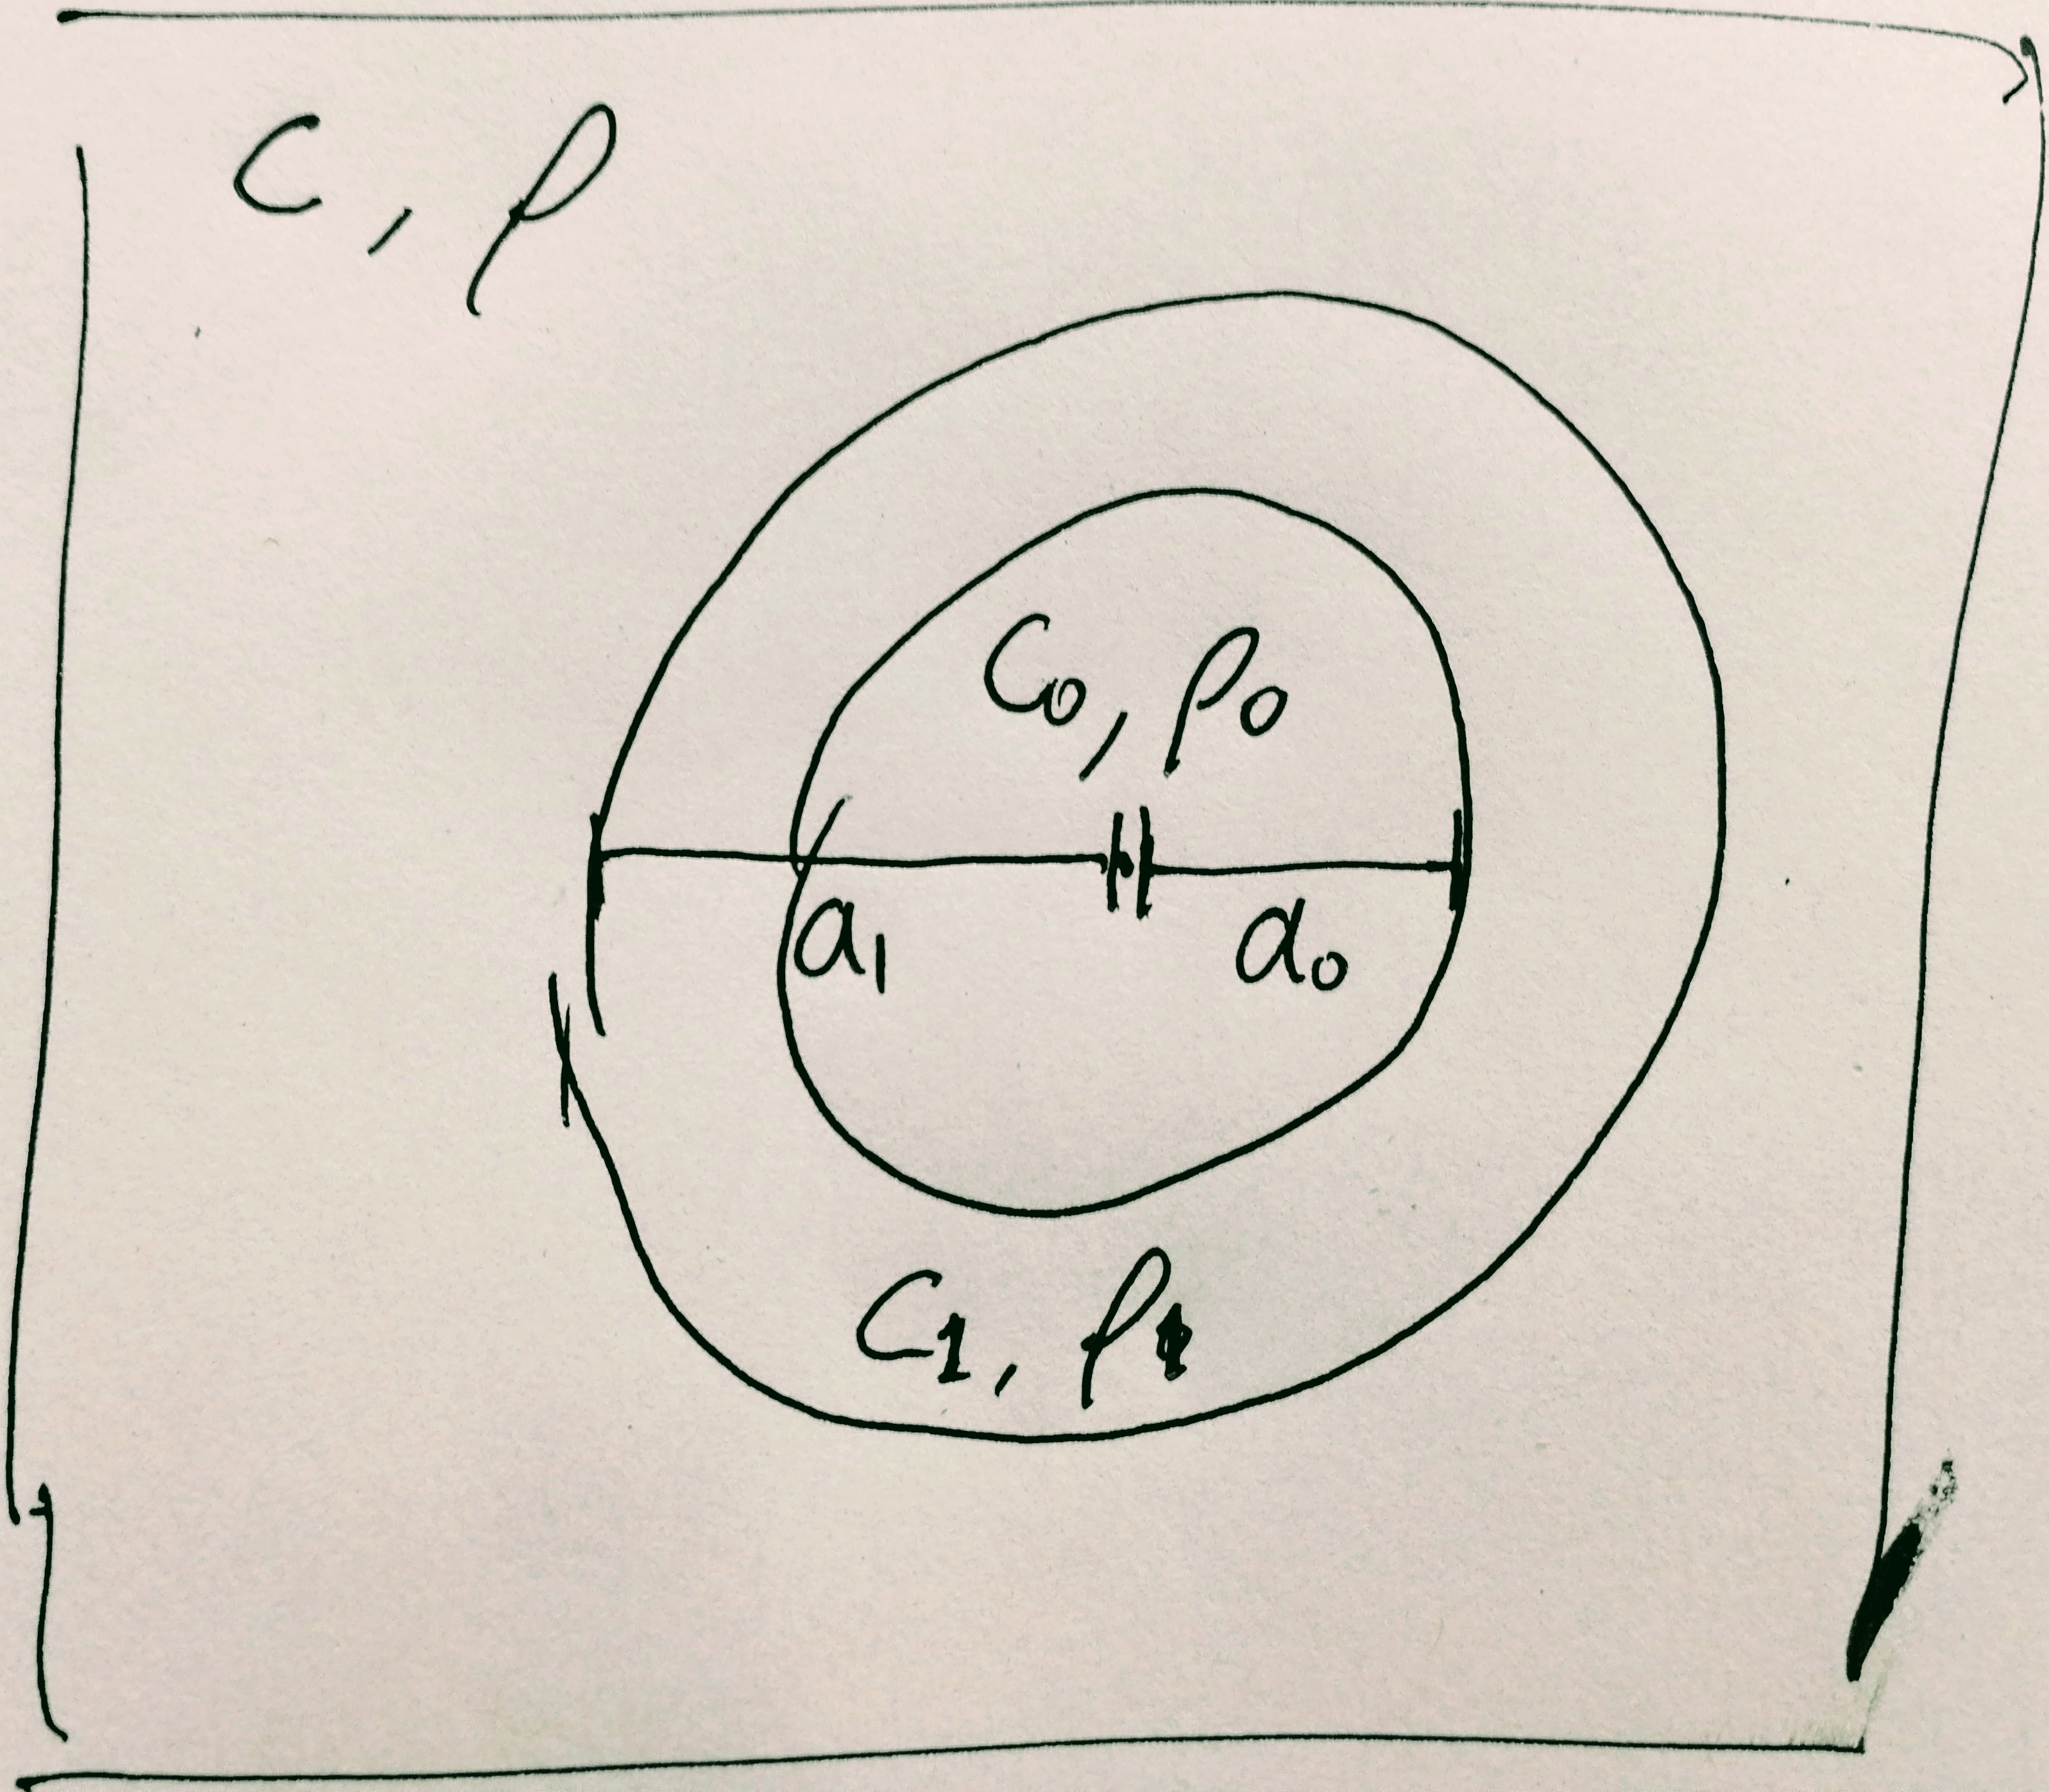 C, ρ
C₀, ρ₀
a₁ a₀
C₁, ρ₁